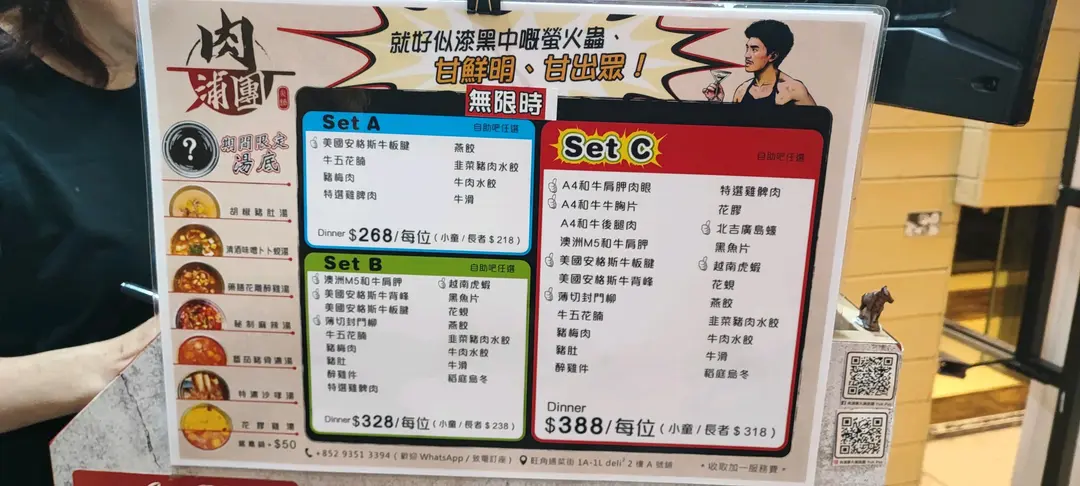 肉
蒲團
就好似漆黑中嘅螢火蟲、
甘鮮明、甘出眾！
無限時
?
期間限定
湯底
胡椒豬肚湯
清酒味噌卜卜蜆湯
藥膳花雕醉雞湯
秘制麻辣湯
番茄豬骨濃湯
特濃沙嗲湯
花膠雞湯
鴛鴦鍋+$50
Set A
自助吧任選
美國安格斯牛板腱
牛五花腩
豬梅肉
特選雞脾肉
燕餃
韭菜豬肉水餃
牛肉水餃
牛滑
Dinner $268/每位(小童/長者$218)
Set B
自助吧任選
澳洲M5和牛肩胛
美國安格斯牛背峰
美國安格斯牛板腱
薄切封門柳
牛五花腩
豬梅肉
豬肚
醉雞件
特選雞脾肉
越南虎蝦
黑魚片
花蜆
燕餃
韭菜豬肉水餃
牛肉水餃
牛滑
稻庭烏冬
Dinner $328/每位(小童/長者$238)
Set C
自助吧任選
A4和牛肩胛肉眼
A4和牛牛胸片
A4和牛後腿肉
澳洲M5和牛肩胛
美國安格斯牛板腱
美國安格斯牛背峰
薄切封門柳
牛五花腩
豬梅肉
豬肚
醉雞件
特選雞脾肉
花膠
北吉廣島蠔
黑魚片
越南虎蝦
花蜆
燕餃
韭菜豬肉水餃
牛肉水餃
牛滑
稻庭烏冬
Dinner
$388/每位(小童/長者$318)
+852 9351 3394 (歡迎 WhatsApp / 致電訂座)
旺角通菜街 1A-1L deli² 2 樓 A 號鋪
*收取加一服務費*